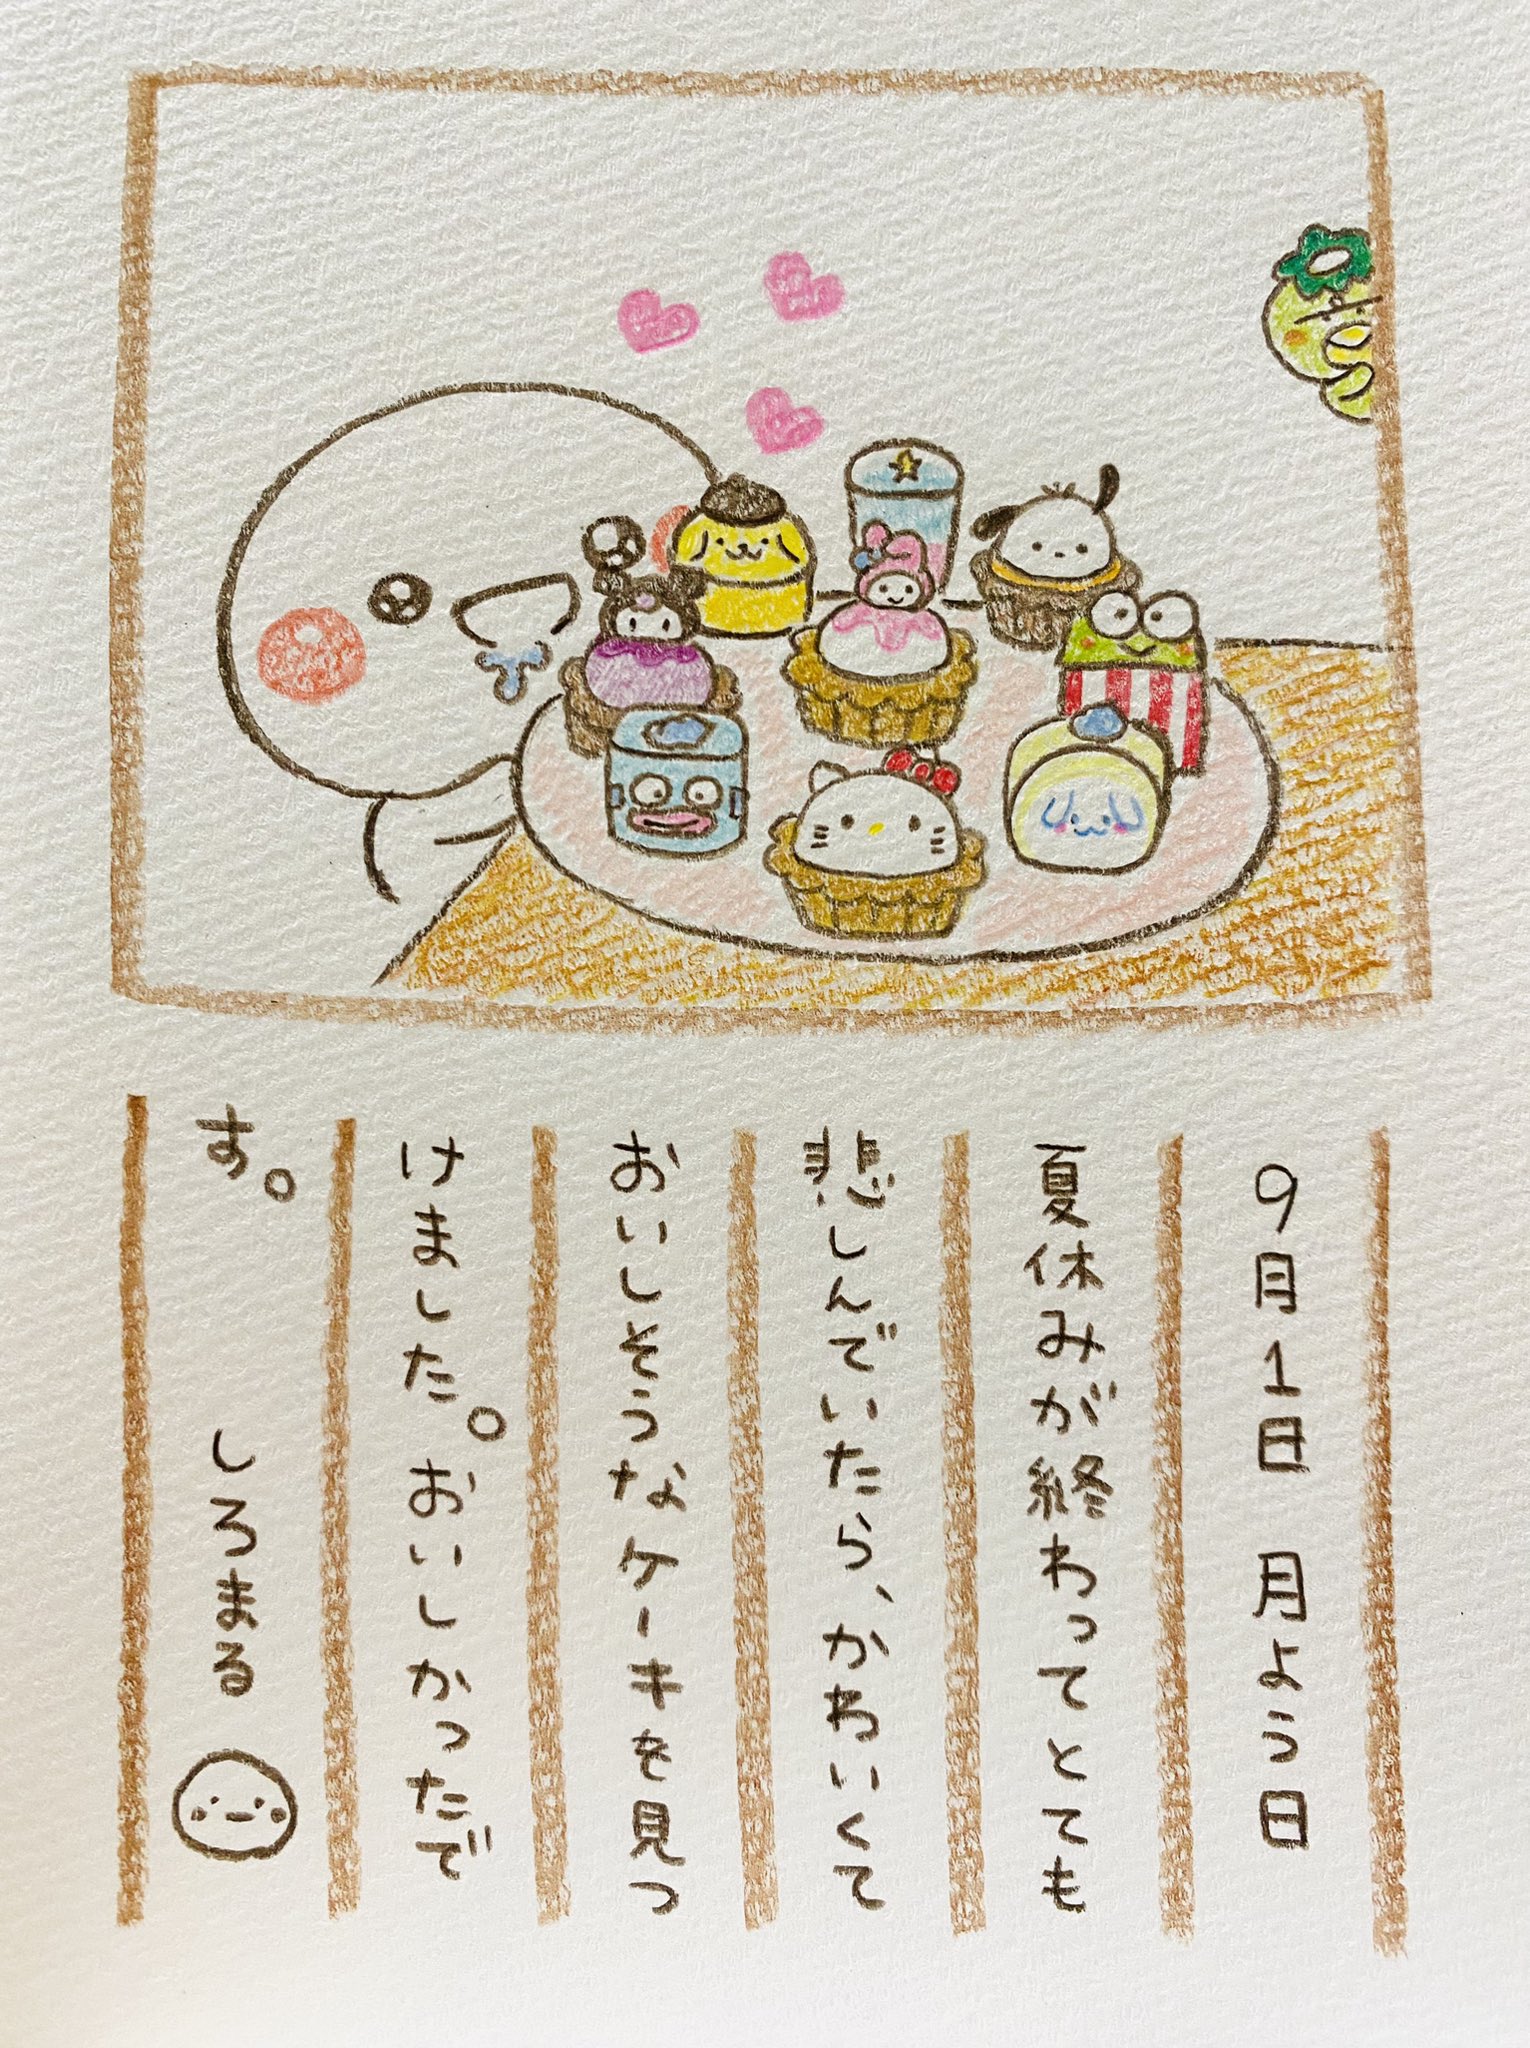 9月1日 月よう日
夏休みが終わってとても
悲しんでいたら、かわいくて
おいしそうなケーキを見つ
けました。おいしかったで
す。 しろまる